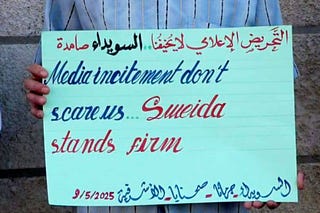 التحريض الإعلامي لا يخيفنا.. السويداء صامدة
Media incitement don't
scare us... Sweida
stands firm
السويداء_جرمانا_صحنايا_الأشرفية
9/5/2025